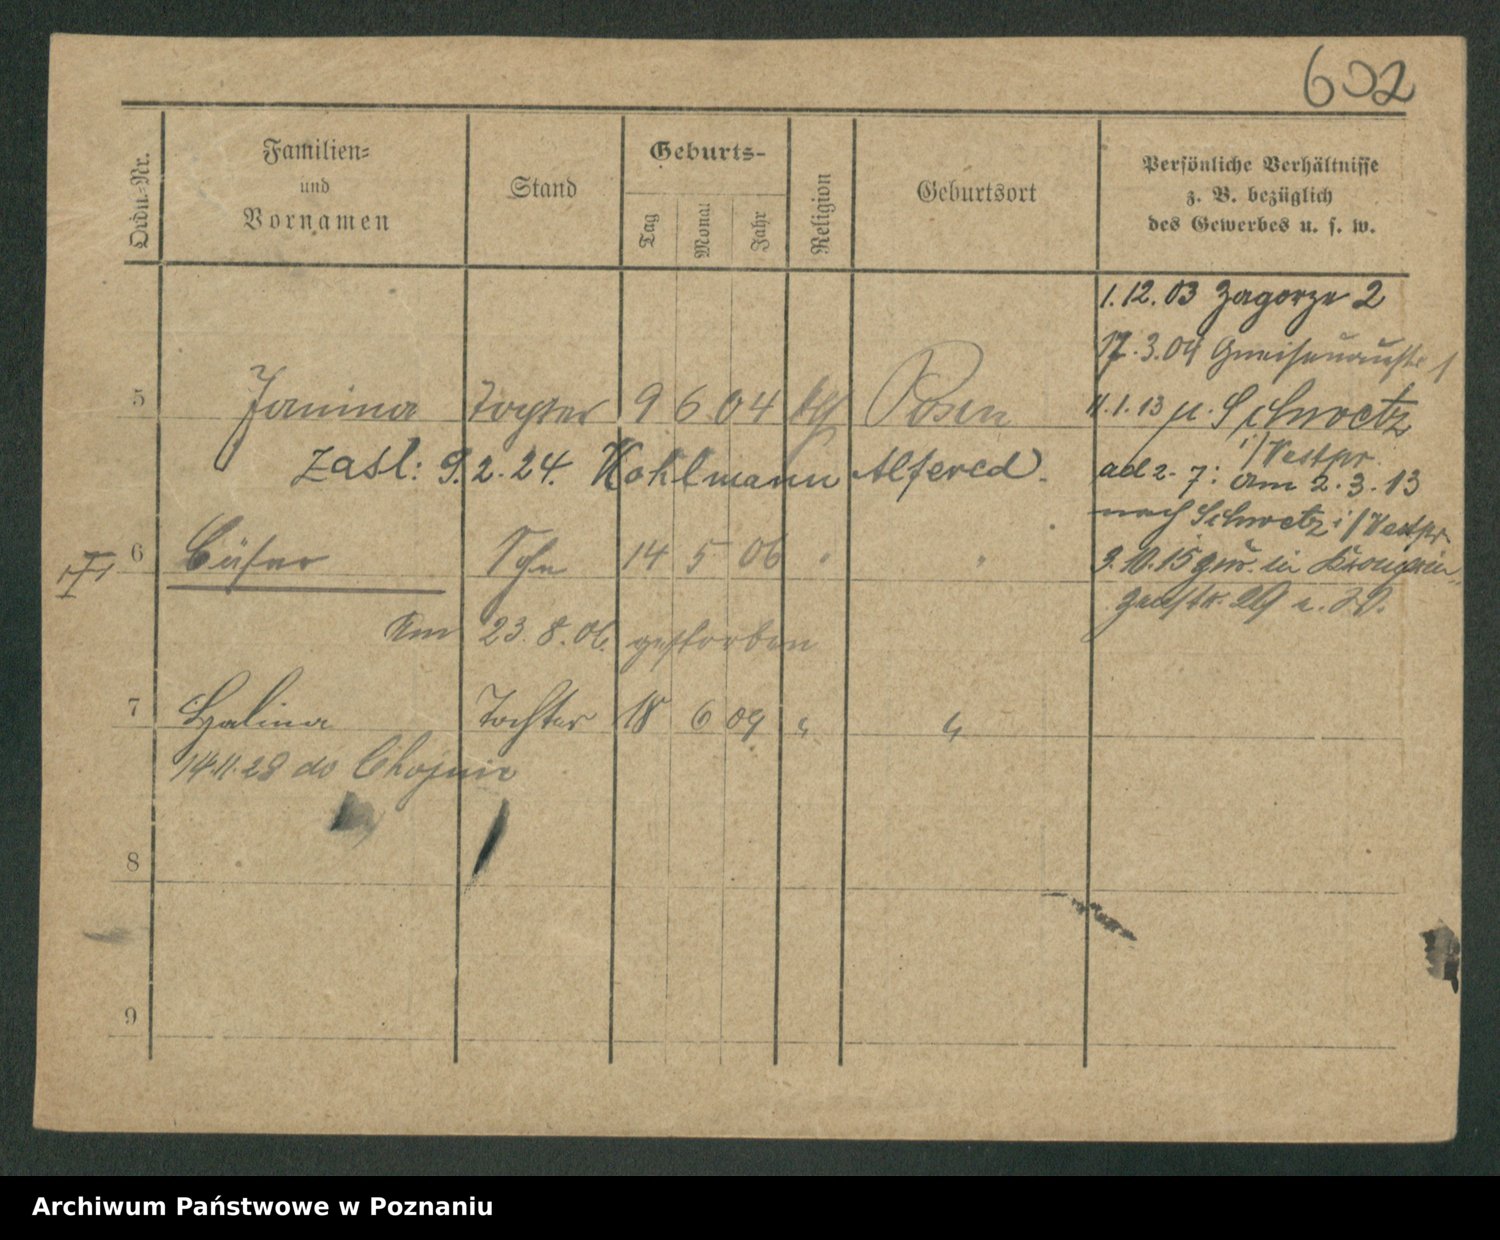 602
Ordn.-Nr.
Familien-
und
Vornamen
Stand
Geburts-
Tag
Monat
Jahr
Religion
Geburtsort
Persönliche Verhältnisse
z. B. bezüglich
des Gewerbes u. s. w.
1.12.03 Zagorze 2
17.3.04 Gneisenaustr 1
5 Janina Tochter 9 6 04 kth Posen
11.1.13 n. Schwetz
i/Westpr.
zasl: 9.2.24. Kohlmann Alfered.
ad 2-7: am 2.3.13
nach Schwetz i/Westpr
6 Sohn 14 5 06 " "
3.10.15 zur. in Kronprin-
zenstr. 29
Am 23.8.06. gestorben
7 Halina Tochter 18 6 09 " "
14.11.28 do
8
9
Archiwum Państwowe w Poznaniu